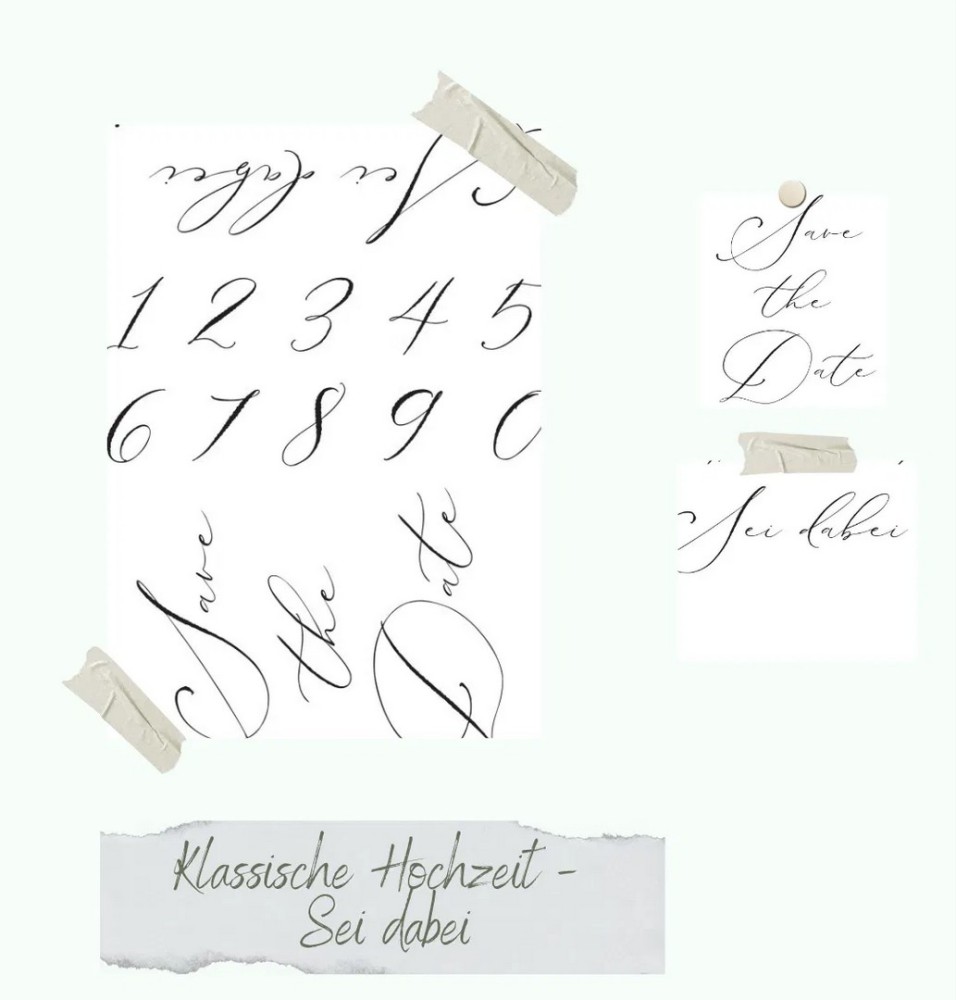 Sei dabei
1 2 3 4 5
6 7 8 9 0
Save
the
Date
Save
the
Date
Sei dabei
Klassische Hochzeit -
Sei dabei